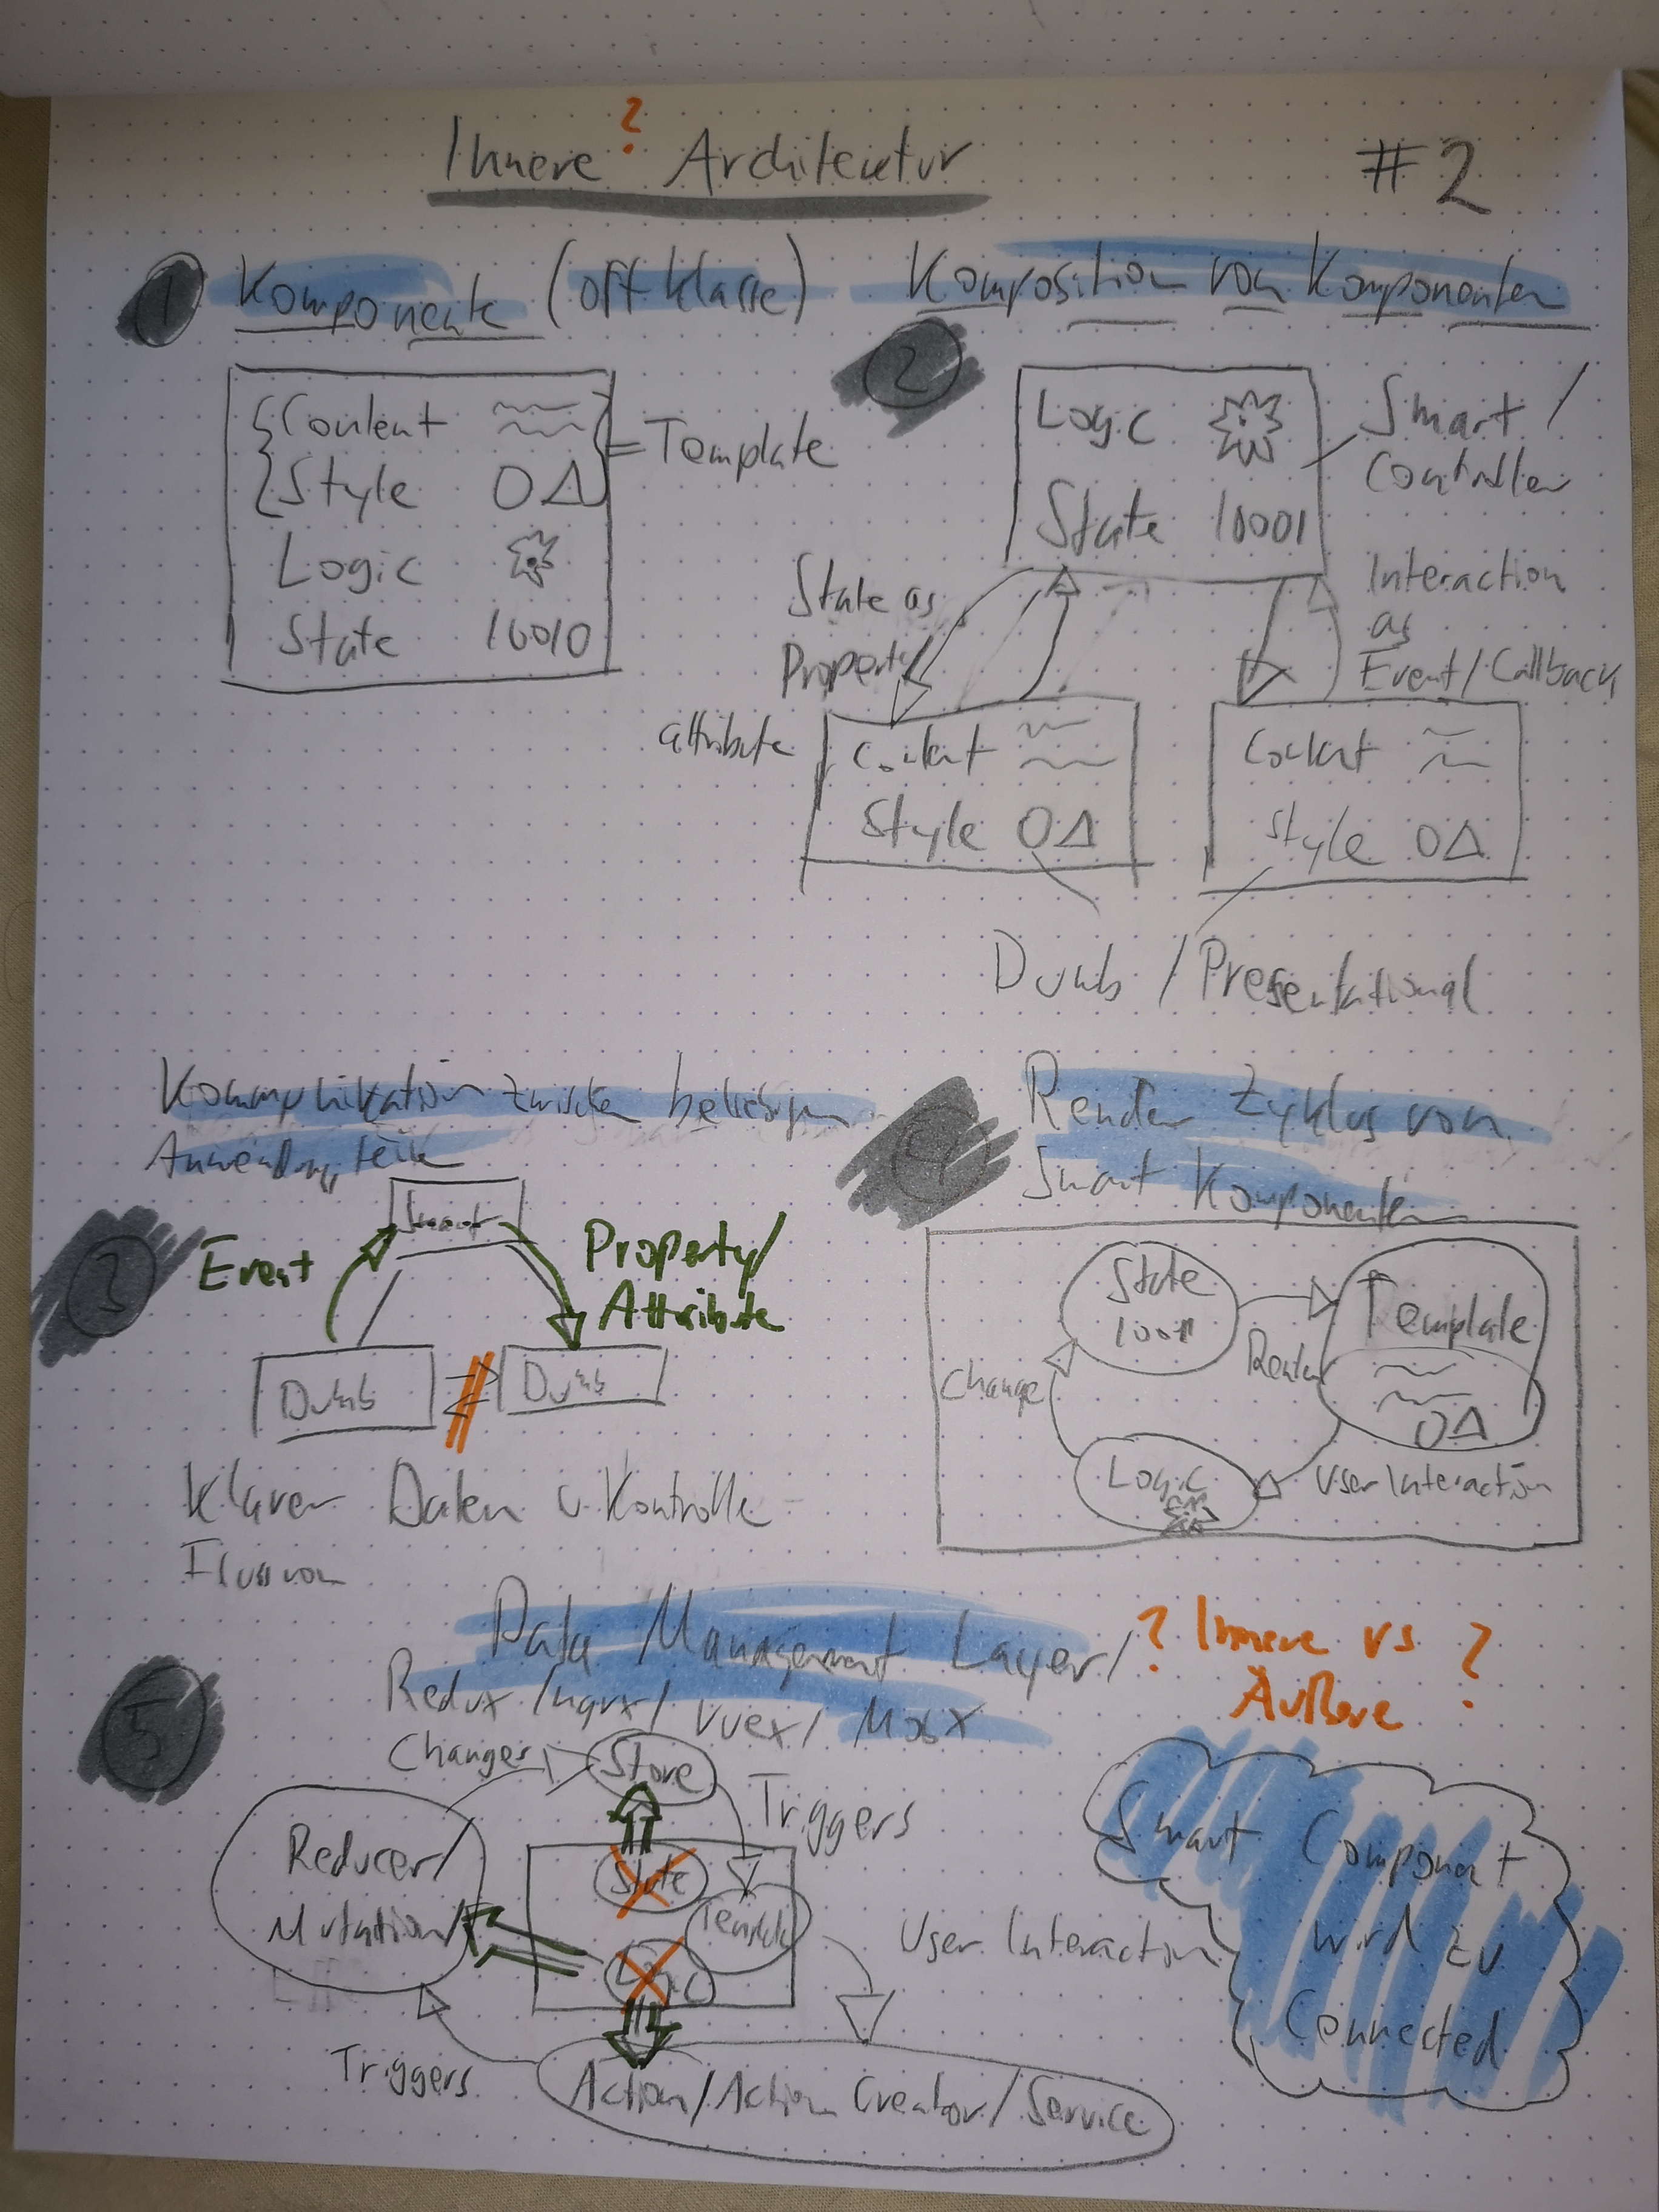 Innere ? Architektur
#2
1 Komponente (oft Klasse)
Content
Style
= Template
Logic
State 10010
Komposition von Komponenten
2
Logic
State 10001
Smart /
Controller
State as
Property
attribute
Interaction
as
Event/Callback
Content
Style
Content
Style
Dumb / Presentational
Kommunikation zwischen beliebigen
Anwendungsteile
3
Smart
Event
Property/
Attribute
Dumb
Dumb
Klarer Daten u. Kontroll-
Fluss von
4
Render Zyklus von
Smart Komponenten
State
Template
Render
Change
Logic
User Interaction
5
Data Management Layer/
Redux /ngrx/ Vuex/ MobX
? Innere vs ?
Äußere
Changes
Store
Triggers
Reducer/
Mutation/
State
Template
Logic
User Interaction
Triggers
Action/Action Creator/Service
Smart Component
wird zu
Connected